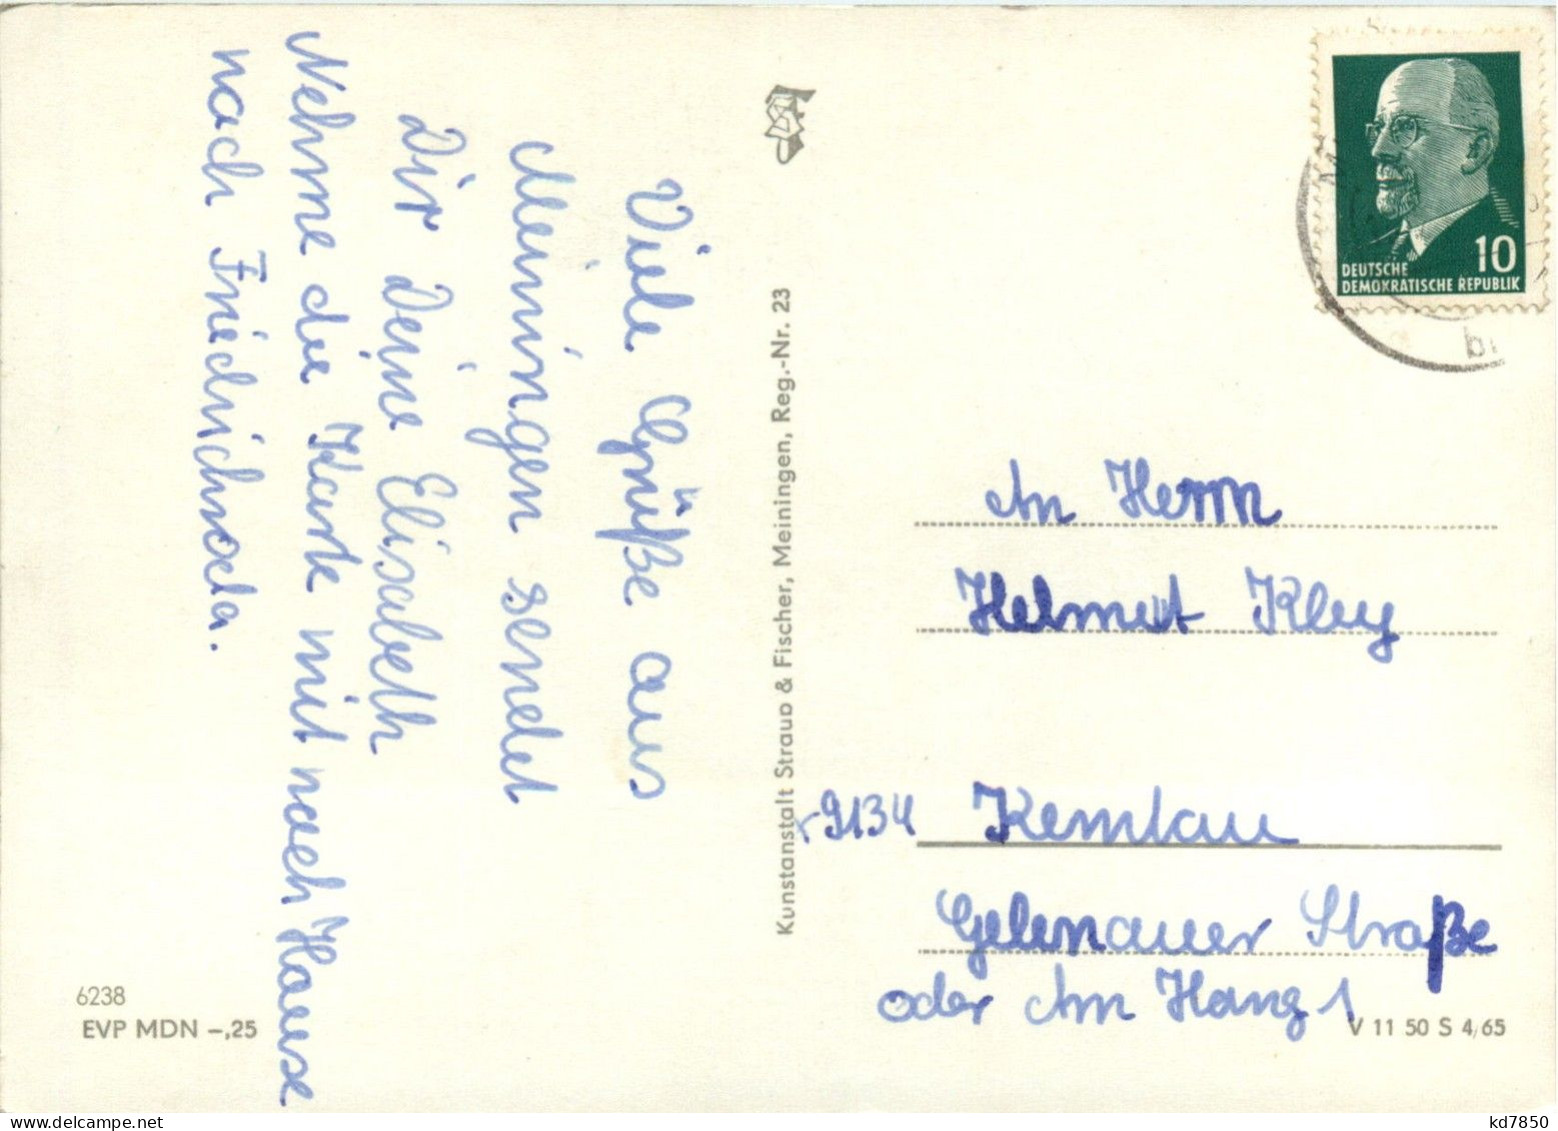 Viele Grüße aus
Meiningen sendet
Dir Deine Elisabeth
Nehme die Karte mit nach Hause
nach Friedrichroda.
Kunstanstalt Straub & Fischer, Meiningen, Reg.-Nr. 23
10
DEUTSCHE
DEMOKRATISCHE REPUBLIK
An Herrn
Helmut Kley
9134 Kemtau
Gelenauer Straße
oder Am Hang 1
6238
EVP MDN –,25
V 11 50 S 4/65
kd7850